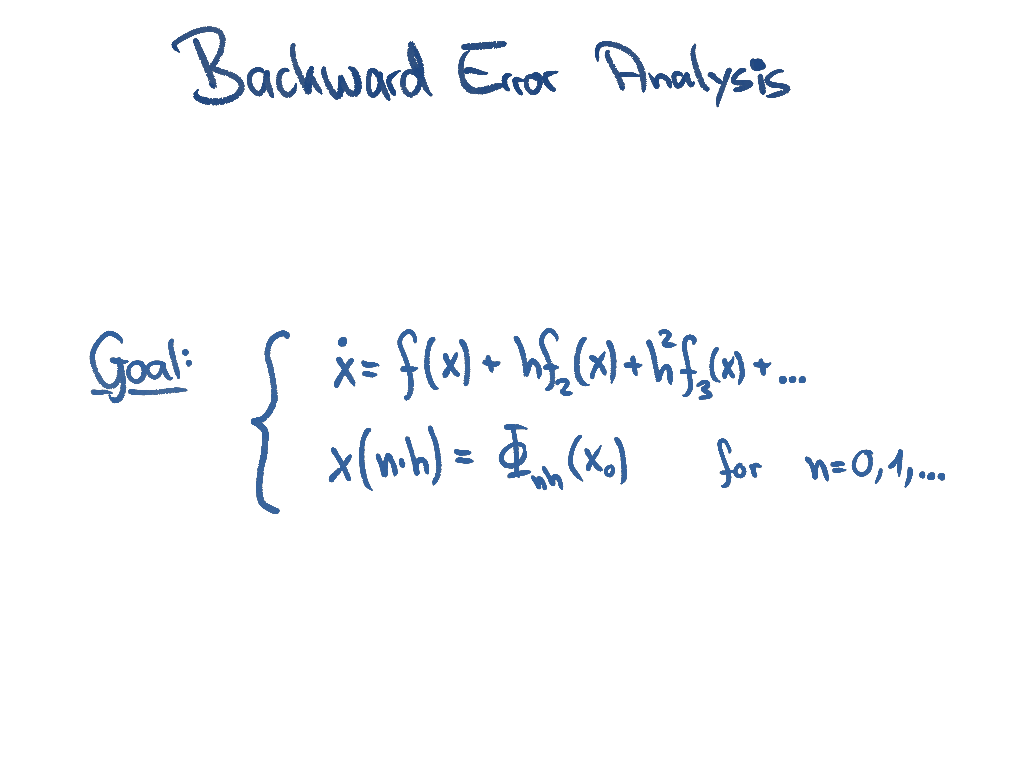 Backward Error Analysis
Goal: { ẋ = f(x) + hf₂(x) + h²f₃(x) + ...
x(n·h) = Φₙₕ(x₀) for n=0,1,...